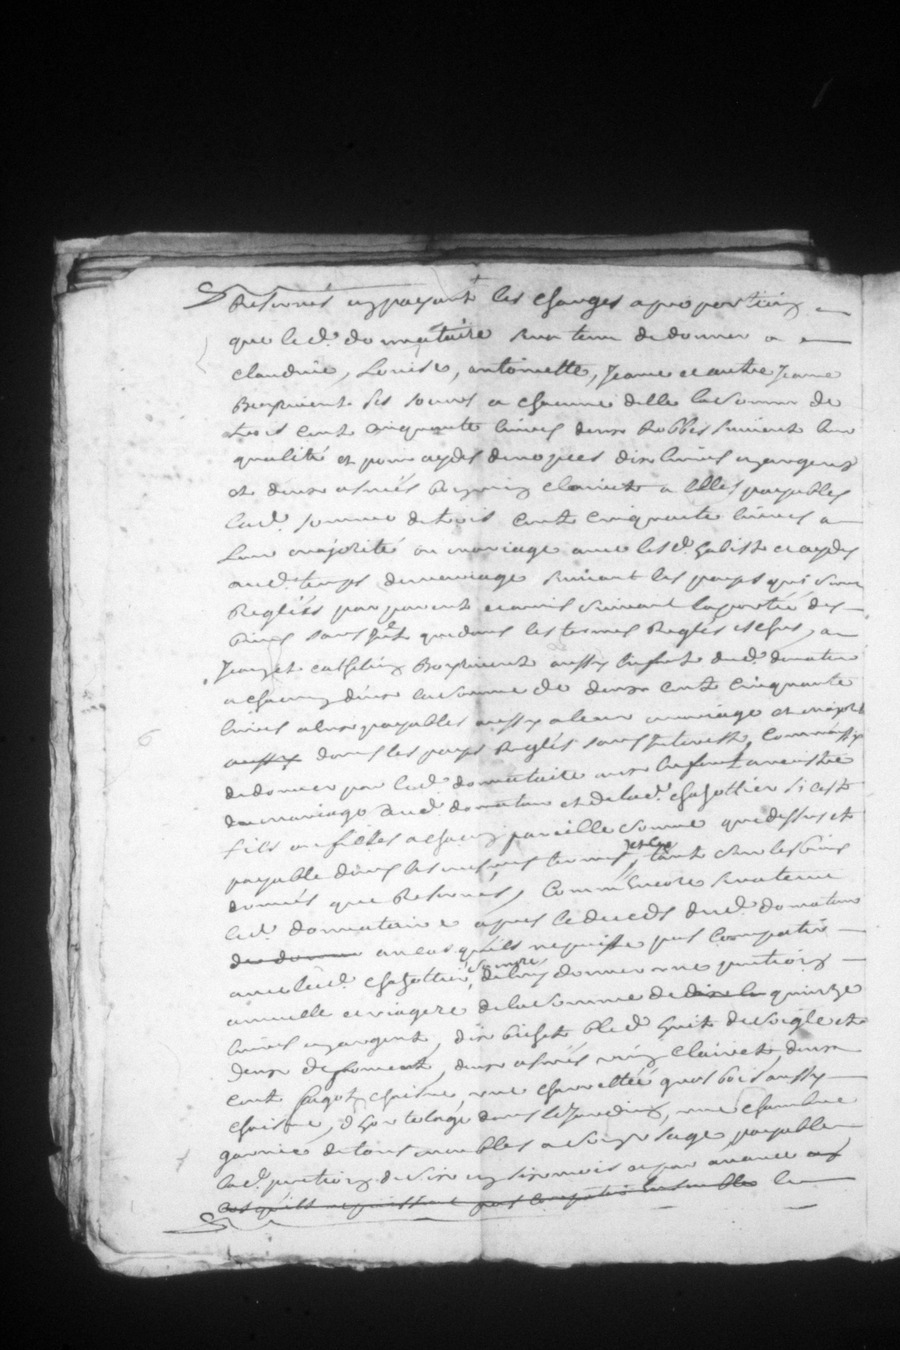 Reservés en payant les charges a proportion
que led. donnataire sera tenu de donner a
claudine, Louise, antoinette, Jeanne et autre Jeanne
ses soeurs a chacune delle la somme de
trois cent cinquante livres deux Robbes suivant leur
qualité et pour aydes de nopces dix livres en argent
et deux asnés vin clairet a Elles payables
lad. somme de trois cent cinquante livres a
Leur majorité ou mariage avec lesd. habist et aydes
aud. temps de mariage suivant les payes qui seront
Reglées par parent et amis suivant la portée des
biens sans que dans les termes Reglés et echus, a
Jean et aussy Enfent dud. donateur
a chacun deux la somme de deux cent cinquante
livres a eux payables aussy a leur mariage et majorité
aussy dans les payes Reglés sans Interest, comm'aussy
de donner par led. donnataire aux Enfent a
du mariage dud. donateur et de lad. chazottier si cest
fils ou filles a chacun pareille somme que dessus et
payable dans les mesmes termes, tant sur les biens
donnés que Reservés, Comm'Encore sera tenu
led. donnataire apres le deceds dud. donateur
de donner au cas qu'ils ne puisse pas compatir
avec lad. chazottier, de luy donner une pention
annuelle et viagere de la somme de dix li quinze
livres en argent, dix bichet bled huit de seigle et
deux de froment, deux asnés vin clairet, deux
cent fagot chaisne, une charretée gros bois aussy
chaisne, d'hortolage dans le Jardin, une chambre
garnie de tous meubles a son usage, payable
lad. pention de six en six mois et par avance au
cas qu'ils ne puissent pas compatir Ensembles le